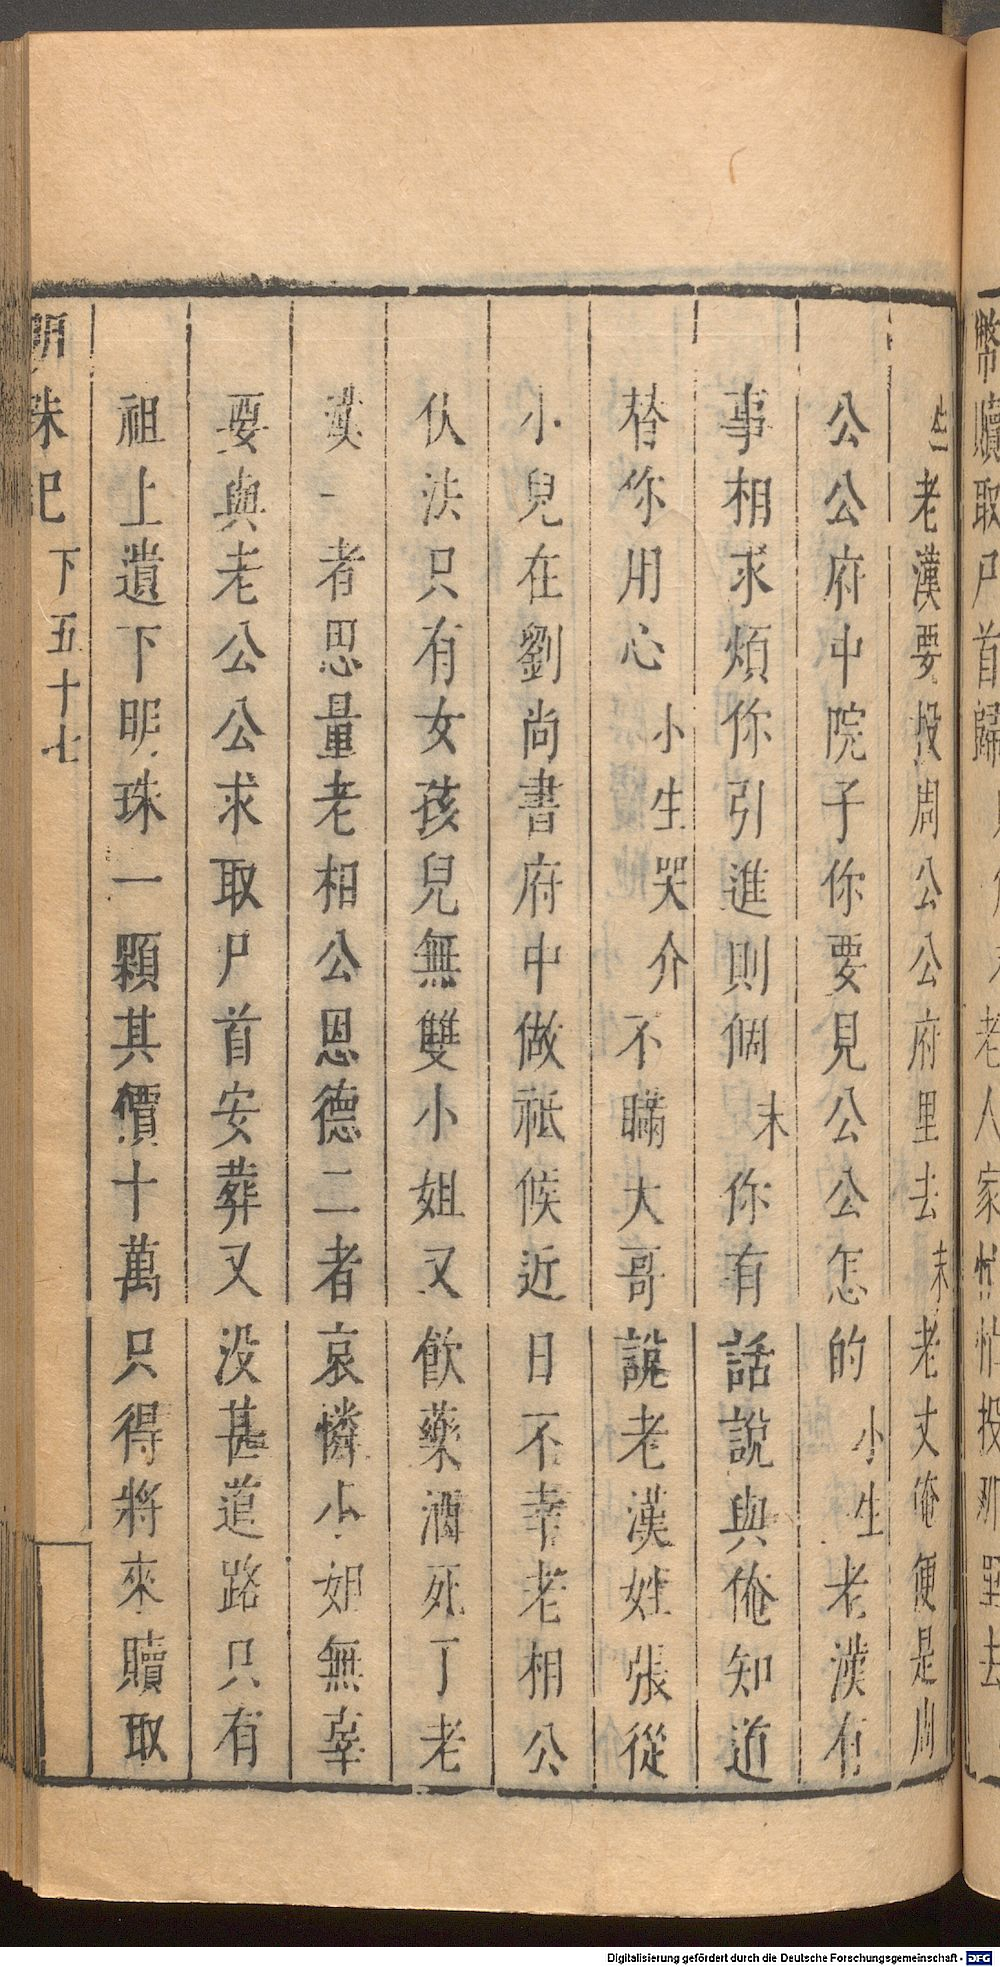 幣贖取尸首歸
老人家忙忙投那里去
生老漢要投周公公府里去末老丈俺便是周
公公府中院子你要見公公怎的小生老漢有
事相求煩你引進則個末你有話說與俺知道
替你用心小生哭介不瞞大哥說老漢姓張從
小兒在劉尚書府中做祗候近日不幸老相公
伏法只有女孩兒無雙小姐又飲藥酒死了老
漢一者思量老相公恩德二者哀憐小姐無辜
要與老公公求取尸首安葬又没甚道路只有
祖上遺下明珠一顆其價十萬只得將來贖取
明珠記 下五十七
Digitalisierung gefördert durch die Deutsche Forschungsgemeinschaft - DFG